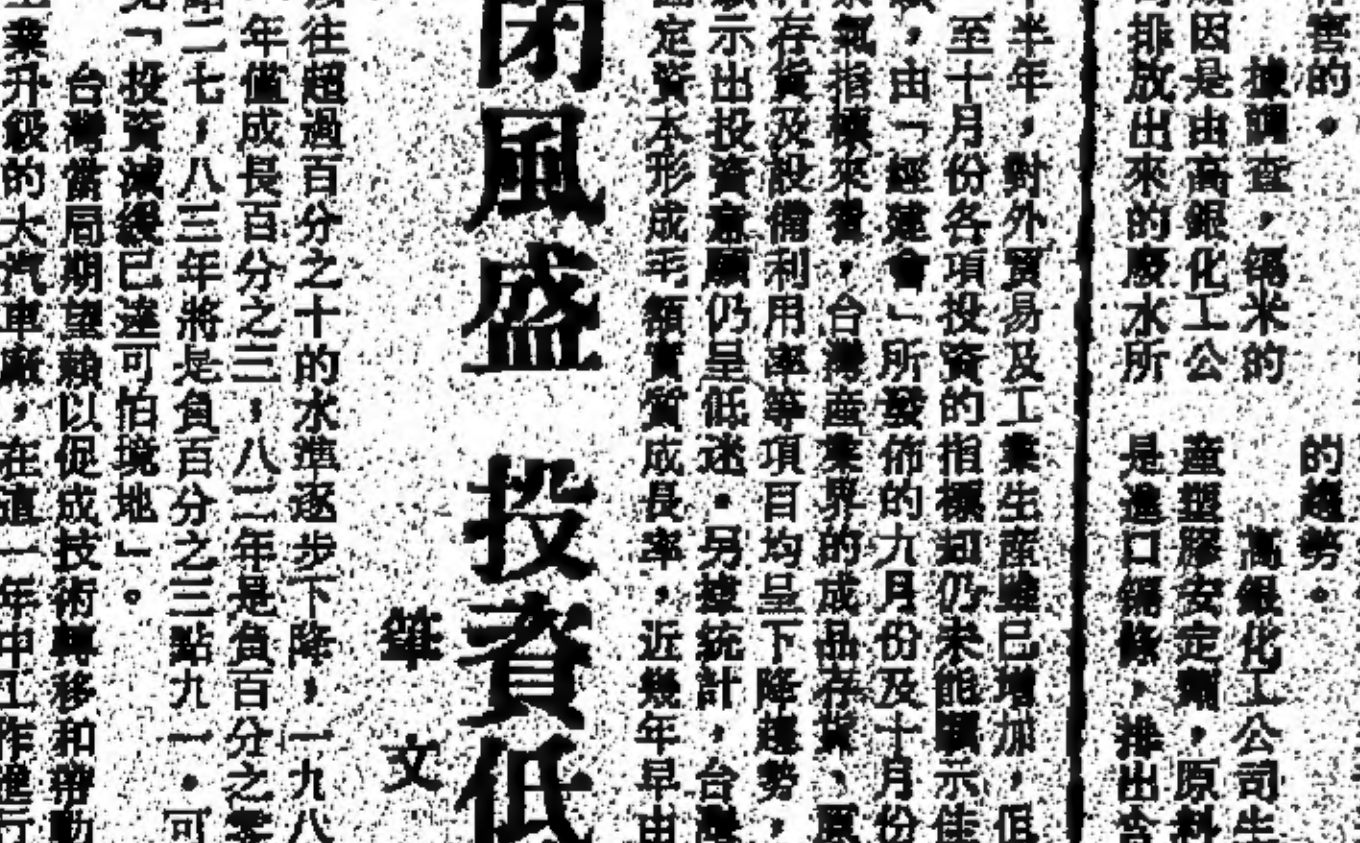 害的。
的趨勢。
據調查，鎘米的
高銀化工公司生
因是由高銀化工公
產塑膠安定劑，原料
排放出來的廢水所
是進口鎘條，排出含
半年，對外貿易及工業生產雖已增加，但
至十月份各項投資的指標却仍未能顯示佳
，由「經建會」所發佈的九月份及十月份
氣指標來看，台灣產業界的成品存貨、原
存貨及設備利用率等項目均呈下降趨勢，
示出投資意願仍呈低迷。另據統計，台灣
固定資本形成毛額實質成長率，近幾年早由
閉風盛 投資低
華 文
往超過百分之十的水準逐步下降，一九八
年僅成長百分之三，八二年是負百分之零
點二七，八三年將是負百分之三點九一。可
「投資減緩已達可怕境地」。
台灣當局期望賴以促成技術轉移和帶動
業升級的大汽車廠，在這一年中工作進行